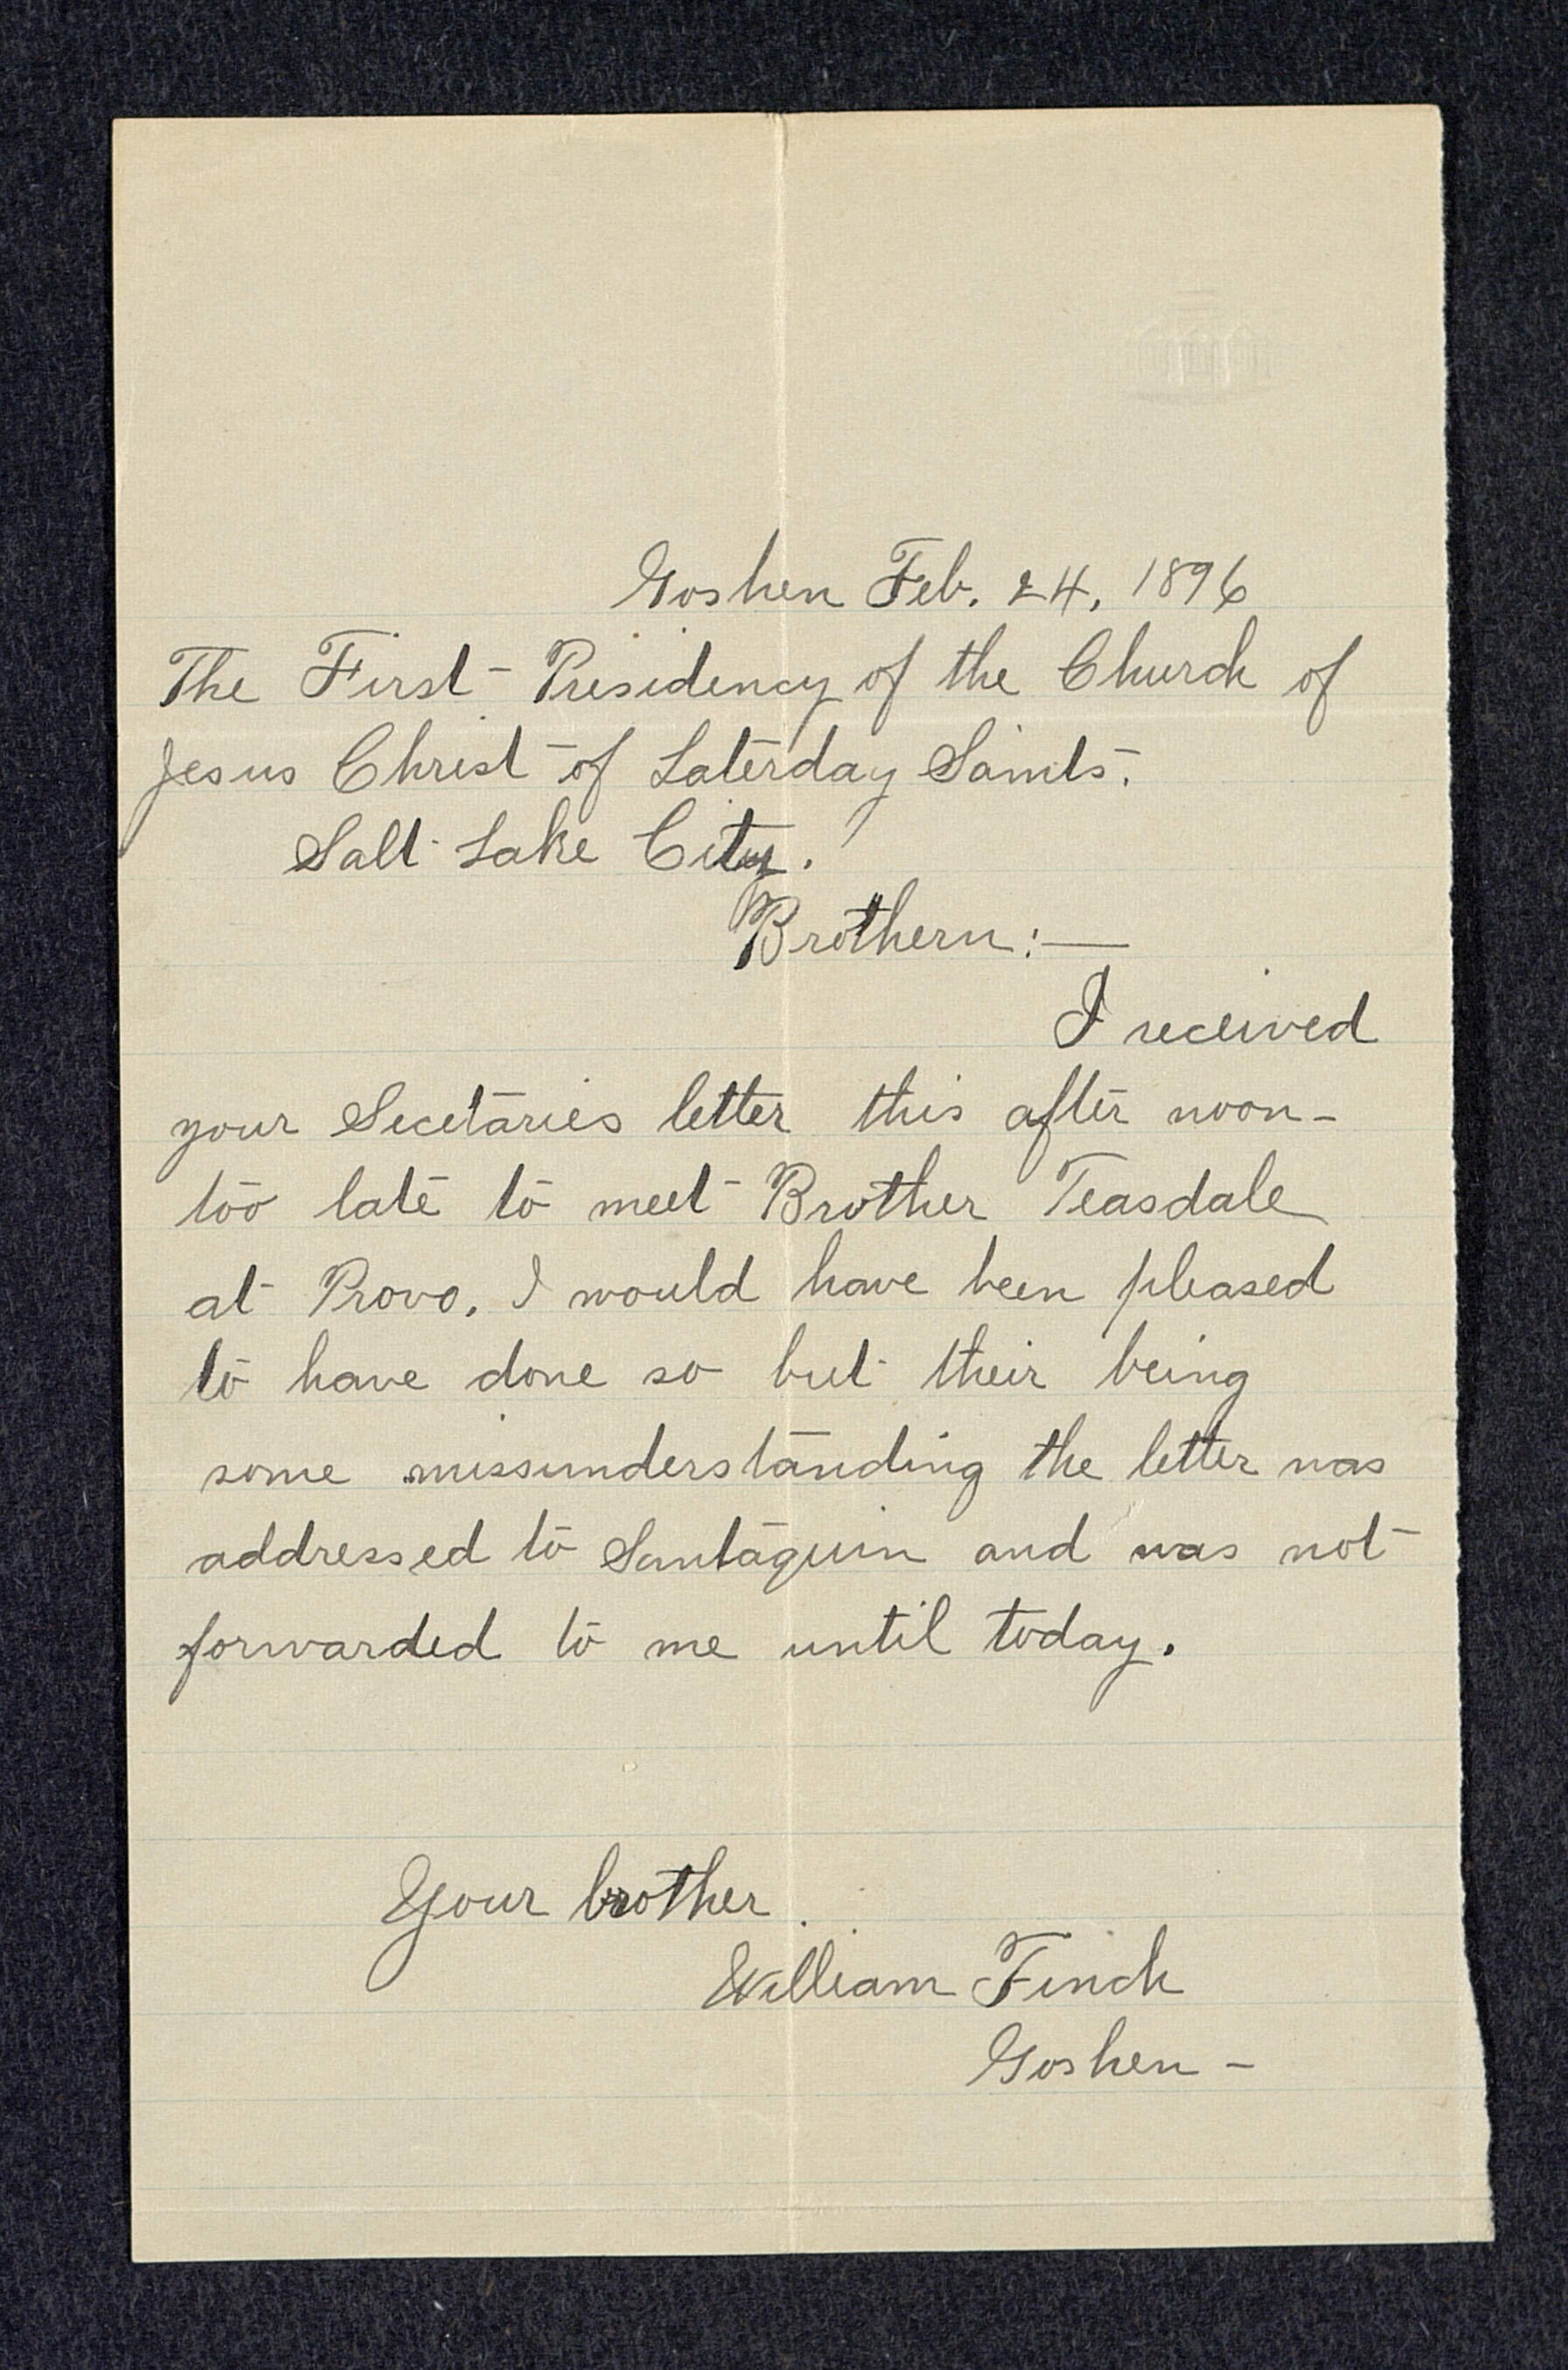 Goshen Feb. 24, 1896
The First Presidency of the Church of
Jesus Christ of Laterday Saints.
Salt Lake City.
Brothern:—
I received
your Secetaries letter this after noon-
too late to meet Brother Teasdale
at Provo. I would have been pleased
to have done so but their being
some missunderstanding the letter was
addressed to Santaquin and was not
forwarded to me until today.
Your brother
William Finch
Goshen -